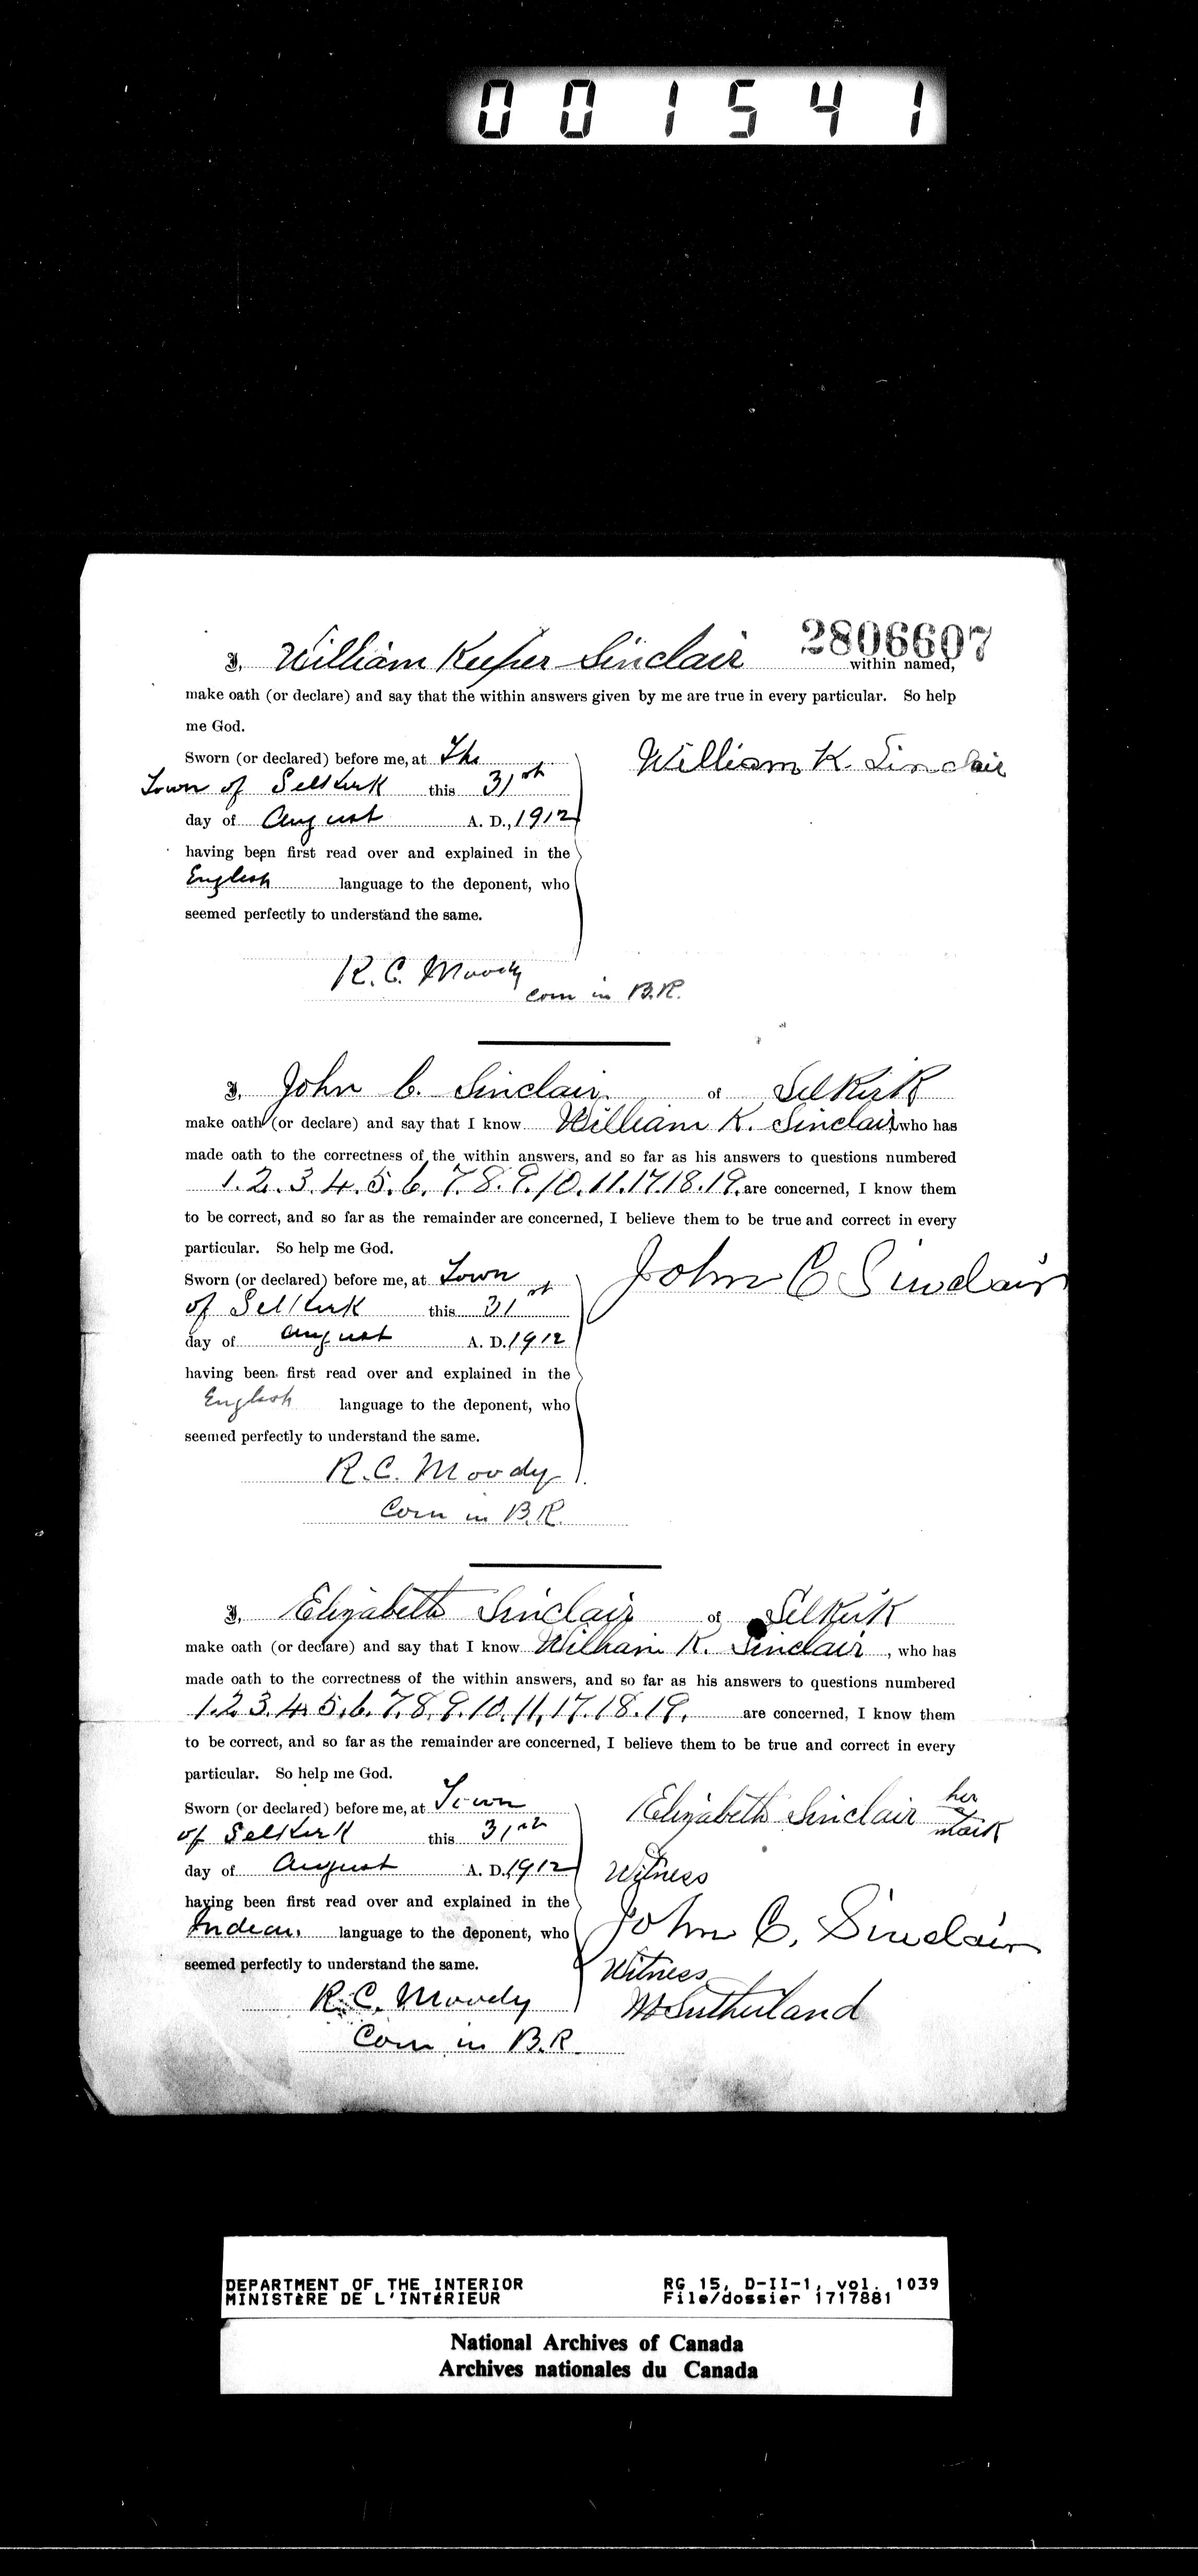 001541
2806607
I, William Keeper Sinclair within named,
make oath (or declare) and say that the within answers given by me are true in every particular. So help
me God.
Sworn (or declared) before me, at The
Town of Selkirk this 31st
day of August A. D., 1912
having been first read over and explained in the
English language to the deponent, who
seemed perfectly to understand the same.
William K. Sinclair
R. C. Moody
Com in B.R.
I, John C. Sinclair. of Selkirk
make oath (or declare) and say that I know William K. Sinclair, who has
made oath to the correctness of the within answers, and so far as his answers to questions numbered
1. 2. 3. 4. 5. 6. 7. 8. 9. 10. 11. 17. 18. 19. are concerned, I know them
to be correct, and so far as the remainder are concerned, I believe them to be true and correct in every
particular. So help me God.
Sworn (or declared) before me, at Town
of Selkirk this 31st
day of August A. D. 1912
having been first read over and explained in the
English language to the deponent, who
seemed perfectly to understand the same.
John C Sinclair
R. C. Moody
Com in B.R.
I, Elizabeth Sinclair of Selkirk
make oath (or declare) and say that I know William K. Sinclair, who has
made oath to the correctness of the within answers, and so far as his answers to questions numbered
1. 2. 3. 4. 5. 6. 7. 8. 9. 10. 11. 17. 18. 19. are concerned, I know them
to be correct, and so far as the remainder are concerned, I believe them to be true and correct in every
particular. So help me God.
Sworn (or declared) before me, at Town
of Selkirk this 31st
day of August A. D. 1912
having been first read over and explained in the
Indian language to the deponent, who
seemed perfectly to understand the same.
Elizabeth Sinclair her
mark
Witness
John C. Sinclair
Witness
Sutherland
R. C. Moody
Com in B.R.
DEPARTMENT OF THE INTERIOR RG 15, D-II-1, vol. 1039
MINISTÈRE DE L'INTÉRIEUR File/dossier 1717881
National Archives of Canada
Archives nationales du Canada